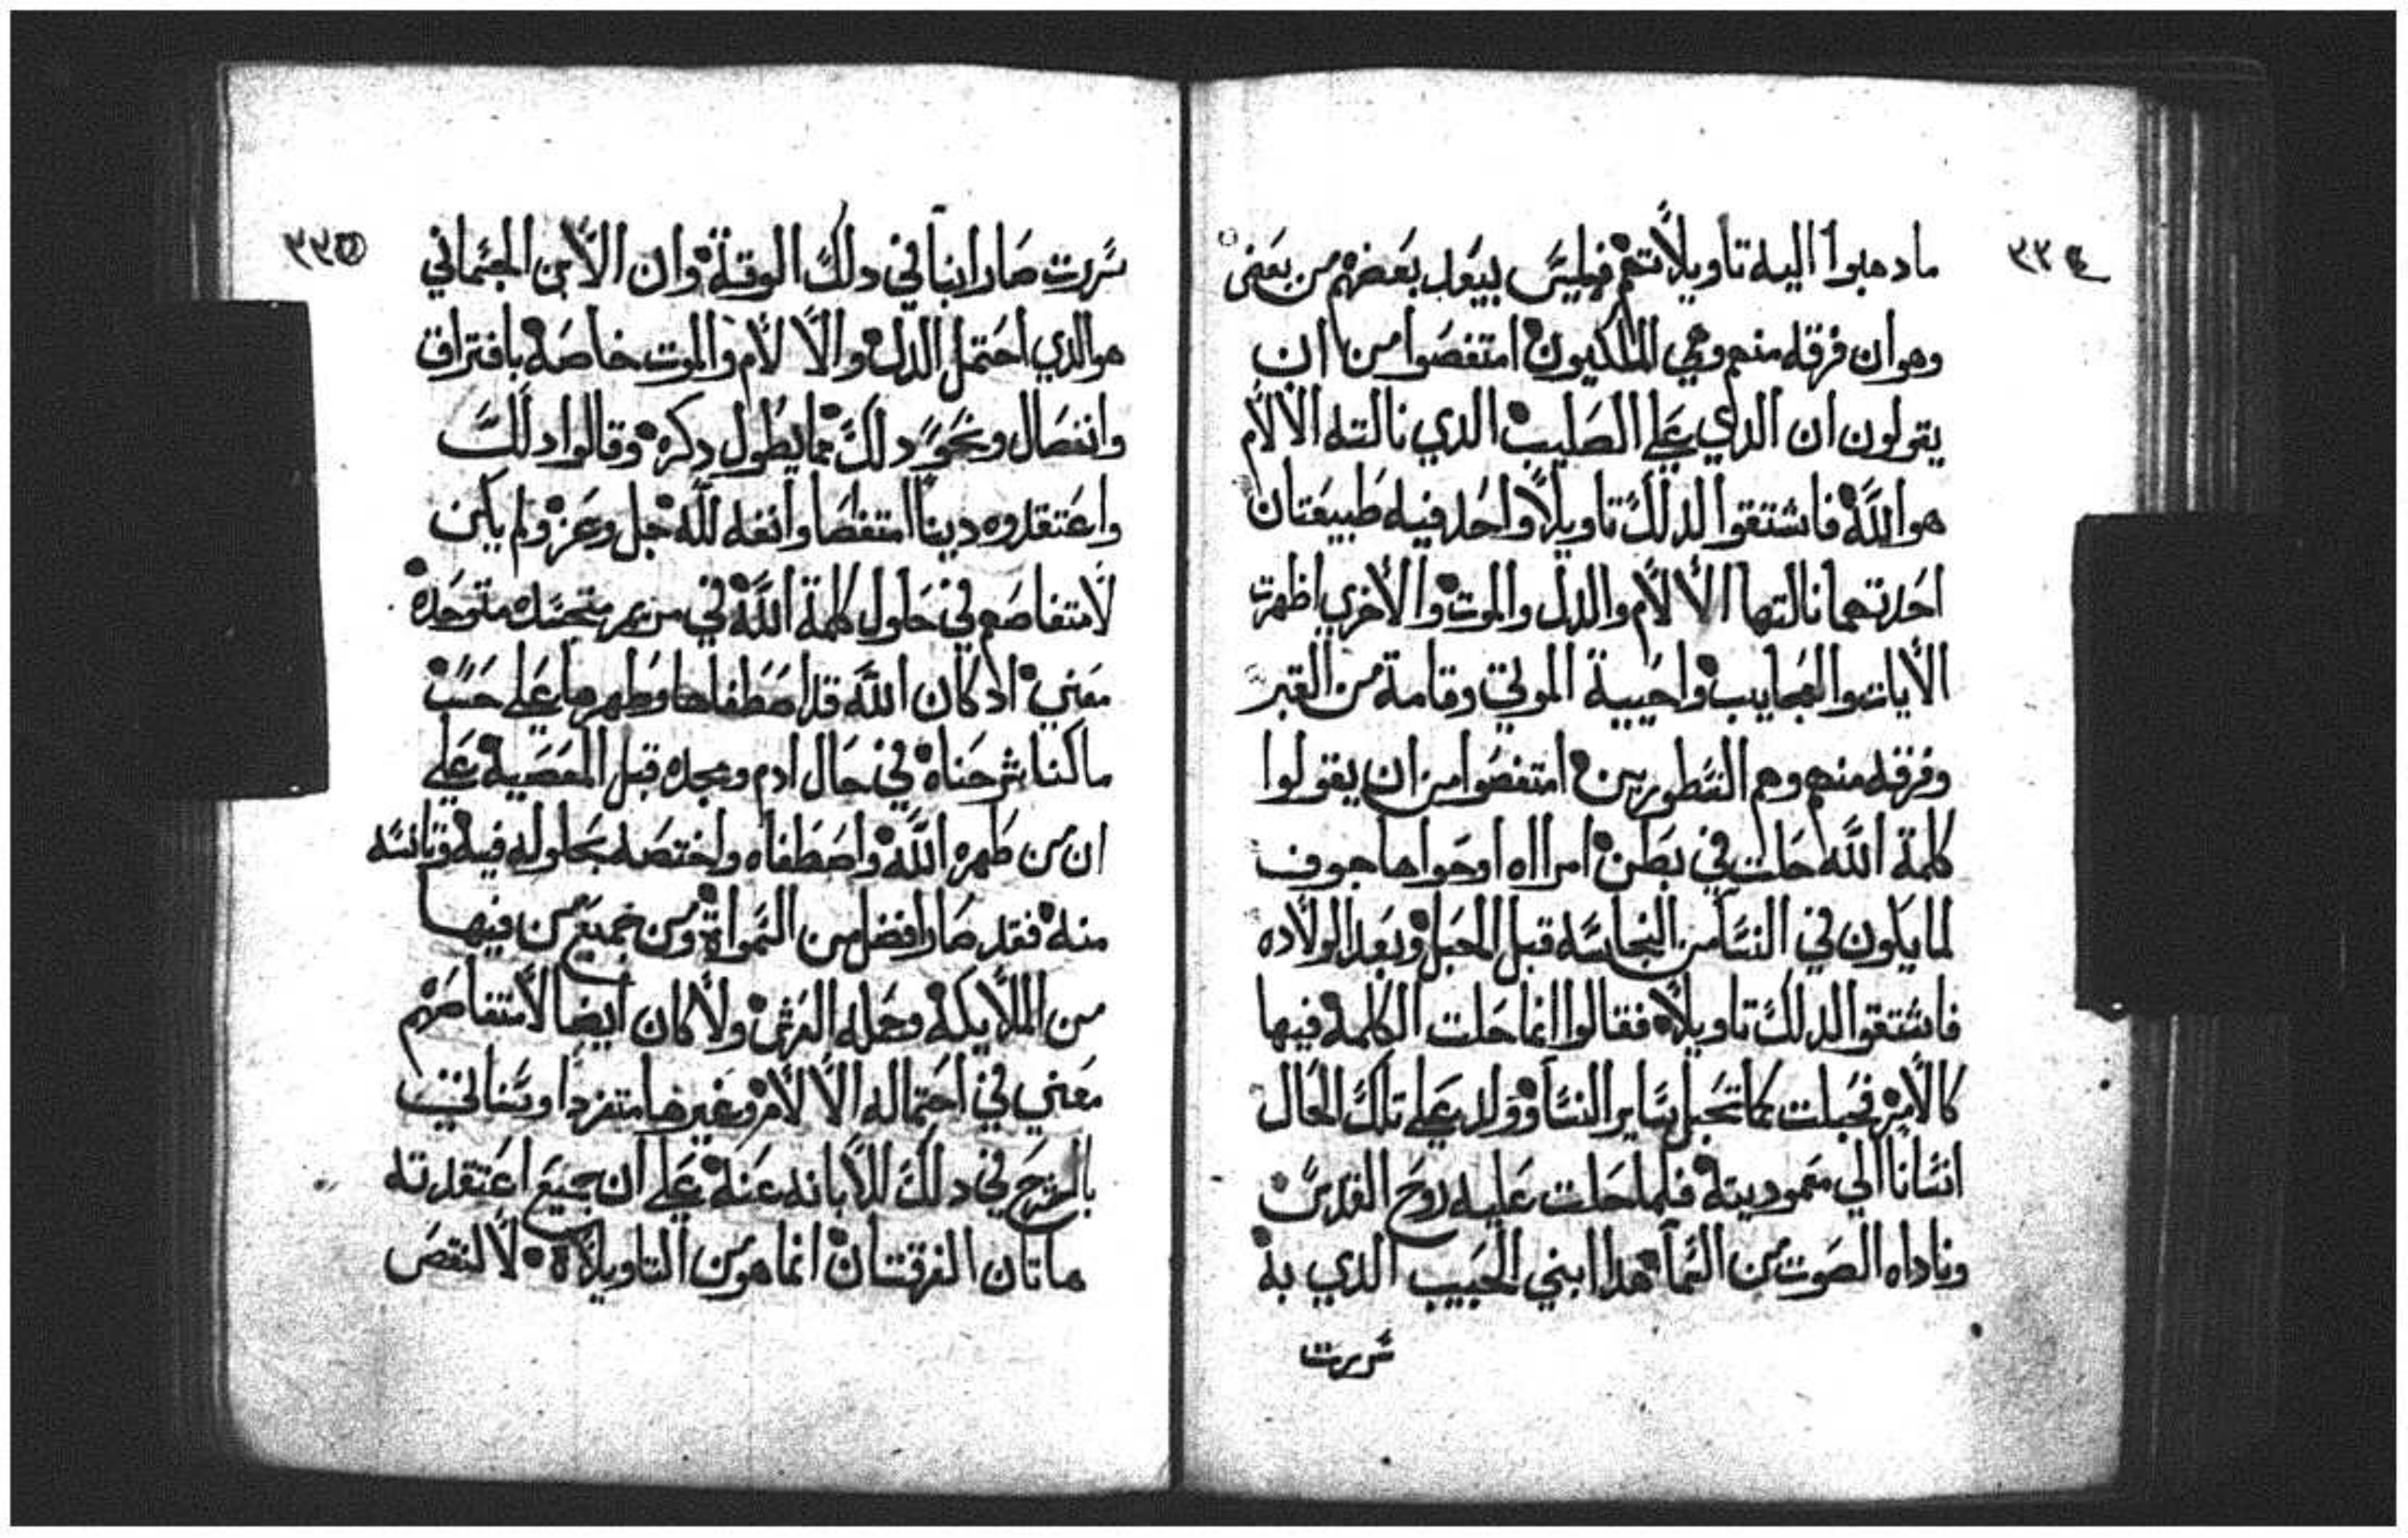 ٣٣٤
مادهبوا اليه تاويلاتهم فليس يبيعد بعضهم من بعض
وهوان فرقه منهم وهي الملكيون امتفصوا من ان
يقولون ان الدي على الصليب الدي نالته الالام
هو الله فاشتقوا لدلك تاويلا واحد فيه طبيعتان
احدتهما نالتها الالام والدل والموت والاخري اظهرت
الايات والعجايب واحيية الموتي وقامة من القبر
وفرقه منهم وهم النسطوريين امتفصوا من ان يقولوا
كلمة الله حلت في بطن امراه اوحواها جوف
لما يكون في النسا من النجاسه قبل الحبل وبعد الولاده
فاشتقوا لدلك تاويلاه فقالوا انما حلت الكلمه فيها
كالامر فحبلت كما تحبل ساير النسا وولد على تلك الحال
انسانا الي معموديته فلما حلت عليه روح القدس
وناداه الصوت من السما هدا ابني الحبيب الدي به
سررت
٣٣٥
سررت صار ابنا في دلك الوقتة وان الابن الجسماني
هوالدي احتمل الدل والالام والموت خاصه بافتراق
وانفصال ونحو دلك مما يطول دكره وقالوا دلك
واعتقدوه دينا امتفصا وانفه لله جل وعز ولم يكن
لامتفاصهم في حلول كلمة الله في مريم متجسده متوحده
معني اد كان الله قد اصطفاها وطهرها على حسب
ماكنا شرحناه في حال ادم ومجده قبل المعصيه على
ان من طهره الله واصطفاه واختصه بحلوله فيه وتانسه
منه فقد صار افضل من السمواة ومن جميع من فيها
من الملايكه وحمله العرش ولا كان ايضا لامتفاصهم
معني في احتماله الالام وغيرها متفردا وتنافيت
بالمزج في دلك للابانه عنه على ان جميع اعتقدته
هاتان الفرقتان انما هو من التاويلاة لا لنقص